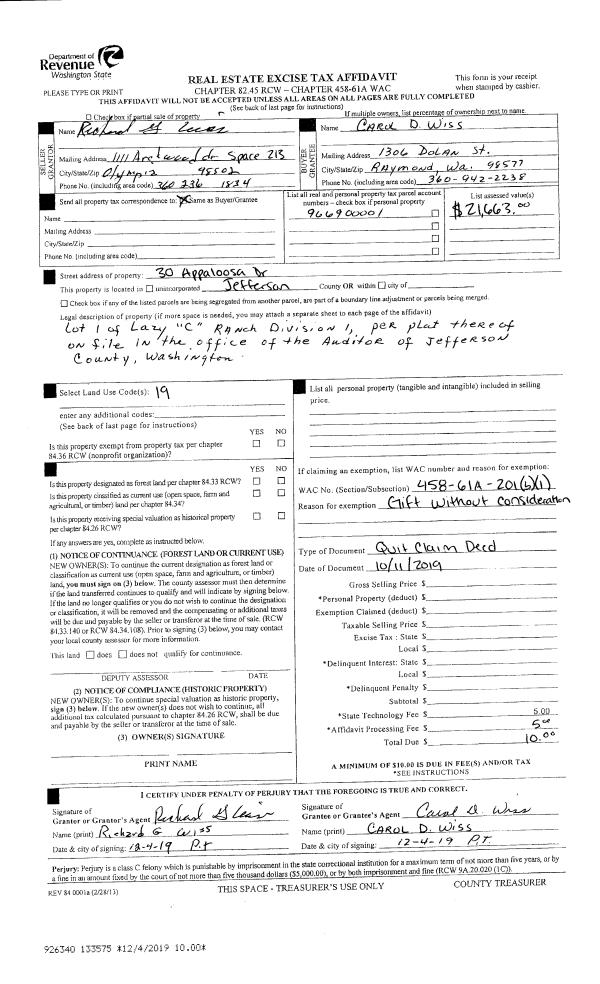 Department of
Revenue
Washington State
PLEASE TYPE OR PRINT
REAL ESTATE EXCISE TAX AFFIDAVIT
CHAPTER 82.45 RCW – CHAPTER 458-61A WAC
This form is your receipt
when stamped by cashier.
THIS AFFIDAVIT WILL NOT BE ACCEPTED UNLESS ALL AREAS ON ALL PAGES ARE FULLY COMPLETED
(See back of last page for instructions)
Check box if partial sale of property
If multiple owners, list percentage of ownership next to name.
SELLER
GRANTOR
Name Richard G
Mailing Address 1111 Archwood dr Space 213
City/State/Zip Olympia 98502
Phone No. (including area code) 360 236 1834
BUYER
GRANTEE
Name CAROL D. WISS
Mailing Address 1306 DOLAN St.
City/State/Zip RAYMOND, Wa. 98577
Phone No. (including area code) 360-942-2238
Send all property tax correspondence to: Same as Buyer/Grantee
Name
Mailing Address
City/State/Zip
Phone No. (including area code)
List all real and personal property tax parcel account
numbers – check box if personal property
966900001
List assessed value(s)
$21,663.00
Street address of property: 30 Appaloosa Dr
This property is located in unincorporated Jefferson County OR within city of
Check box if any of the listed parcels are being segregated from another parcel, are part of a boundary line adjustment or parcels being merged.
Legal description of property (if more space is needed, you may attach a separate sheet to each page of the affidavit)
Lot 1 of Lazy "C" Ranch Division 1, per plat thereof
on file in the office of the Auditor of Jefferson
County, Washington.
Select Land Use Code(s): 19
enter any additional codes:
(See back of last page for instructions)
YES NO
Is this property exempt from property tax per chapter
84.36 RCW (nonprofit organization)?
YES NO
Is this property designated as forest land per chapter 84.33 RCW?
Is this property classified as current use (open space, farm and
agricultural, or timber) land per chapter 84.34?
Is this property receiving special valuation as historical property
per chapter 84.26 RCW?
If any answers are yes, complete as instructed below.
(1) NOTICE OF CONTINUANCE (FOREST LAND OR CURRENT USE)
NEW OWNER(S): To continue the current designation as forest land or
classification as current use (open space, farm and agriculture, or timber)
land, you must sign on (3) below. The county assessor must then determine
if the land transferred continues to qualify and will indicate by signing below.
If the land no longer qualifies or you do not wish to continue the designation
or classification, it will be removed and the compensating or additional taxes
will be due and payable by the seller or transferor at the time of sale. (RCW
84.33.140 or RCW 84.34.108). Prior to signing (3) below, you may contact
your local county assessor for more information.
This land does does not qualify for continuance.
DEPUTY ASSESSOR DATE
(2) NOTICE OF COMPLIANCE (HISTORIC PROPERTY)
NEW OWNER(S): To continue special valuation as historic property,
sign (3) below. If the new owner(s) does not wish to continue, all
additional tax calculated pursuant to chapter 84.26 RCW, shall be due
and payable by the seller or transferor at the time of sale.
(3) OWNER(S) SIGNATURE
PRINT NAME
List all personal property (tangible and intangible) included in selling
price.
If claiming an exemption, list WAC number and reason for exemption:
WAC No. (Section/Subsection) 458-61A-201(b)(1)
Reason for exemption Gift without consideration
Type of Document Quit Claim Deed
Date of Document 10/11/2019
Gross Selling Price $
*Personal Property (deduct) $
Exemption Claimed (deduct) $
Taxable Selling Price $
Excise Tax : State $
Local $
*Delinquent Interest: State $
Local $
*Delinquent Penalty $
Subtotal $
*State Technology Fee $ 5.00
*Affidavit Processing Fee $ 5.00
Total Due $ 10.00
A MINIMUM OF $10.00 IS DUE IN FEE(S) AND/OR TAX
*SEE INSTRUCTIONS
I CERTIFY UNDER PENALTY OF PERJURY THAT THE FOREGOING IS TRUE AND CORRECT.
Signature of
Grantor or Grantor's Agent Richard G
Name (print) Richard G Wiss
Date & city of signing: 12-4-19 P.T
Signature of
Grantee or Grantee's Agent Carol D. Wiss
Name (print) CAROL D. WISS
Date & city of signing: 12-4-19 P.T.
Perjury: Perjury is a class C felony which is punishable by imprisonment in the state correctional institution for a maximum term of not more than five years, or by
a fine in an amount fixed by the court of not more than five thousand dollars ($5,000.00), or by both imprisonment and fine (RCW 9A.20.020 (1C)).
REV 84 0001a (2/28/13)
THIS SPACE - TREASURER'S USE ONLY
COUNTY TREASURER
926340 133575 *12/4/2019 10.00*